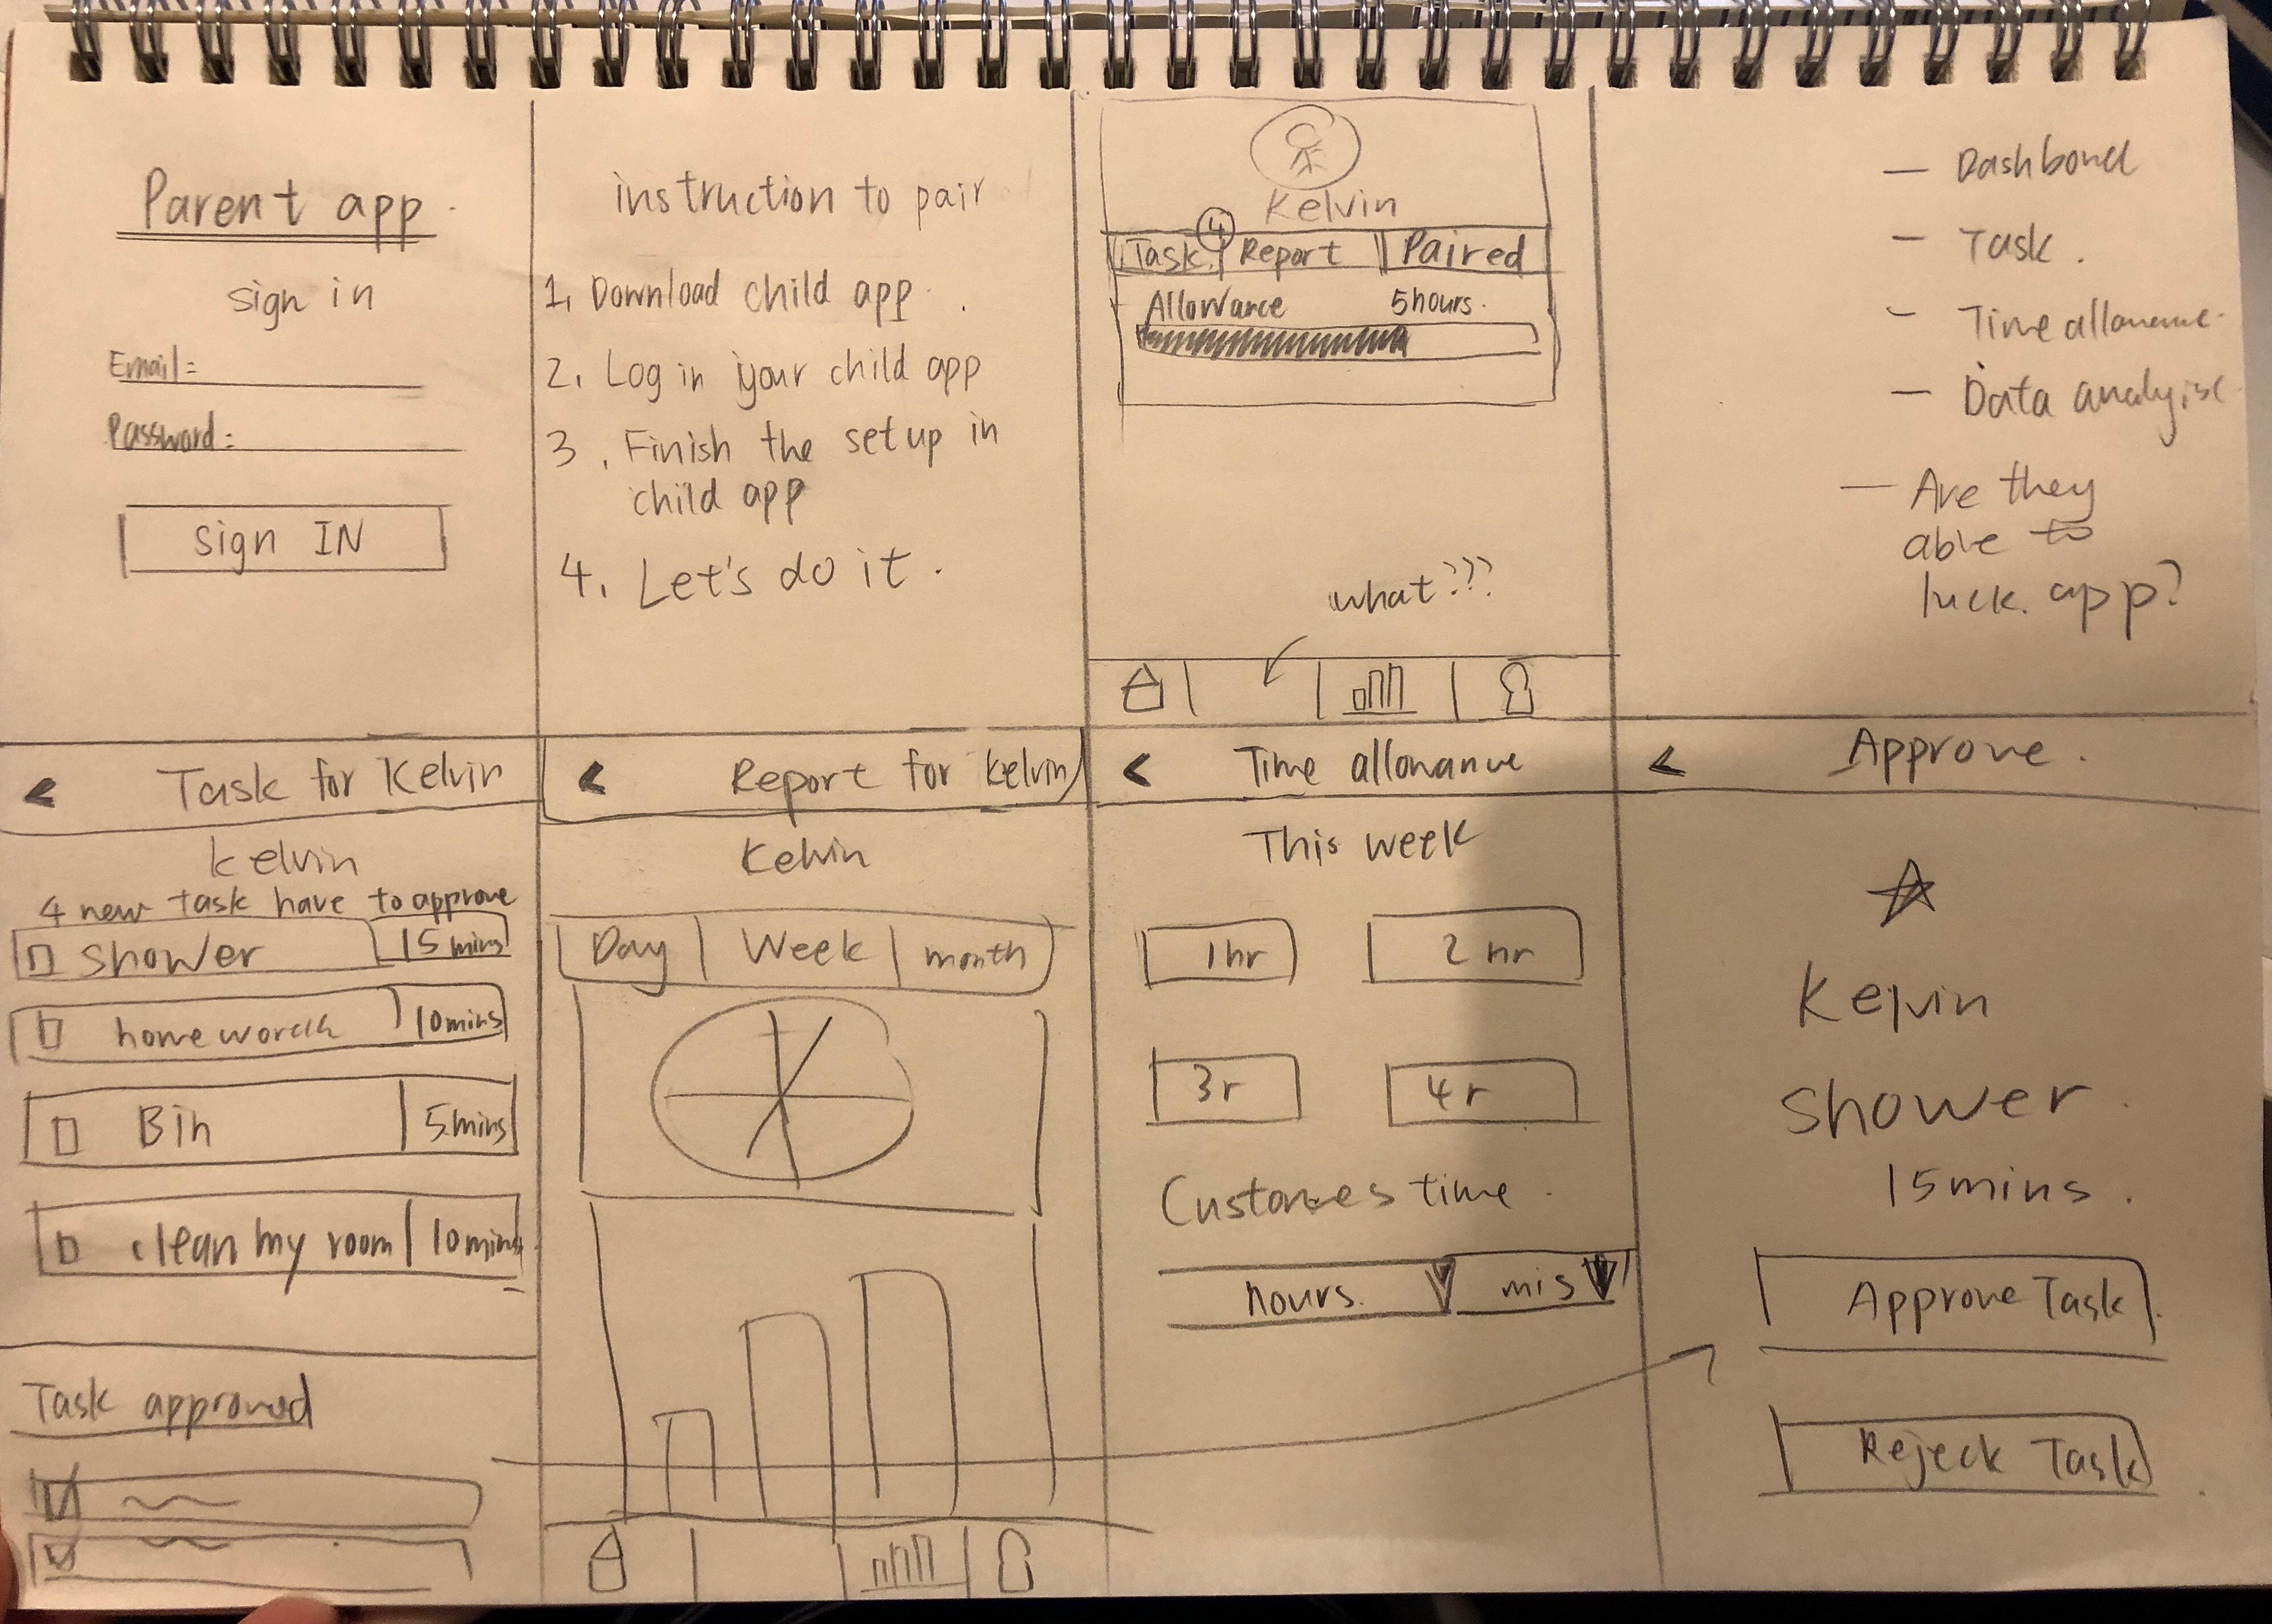 Parent app.
sign in
Email:
Password:
Sign IN
instruction to pair
1. Download child app.
2. Log in your child app
3. Finish the setup in
child app
4. Let's do it.
Kelvin
4
Task Report Paired
Allowance 5 hours.
what???
- Dashboard
- Task.
- Time allowance.
- Data analyise
- Are they
able to
luck. app?
< Task for Kelvin
kelvin
4 new task have to approve
shower 15 mins
homework 10 mins
Bin 5 mins
clean my room 10 mins
Task approved
< Report for kelvin
Kelvin
Day Week month
< Time allowance
This week
1hr 2hr
3r 4r
time.
hours. mis
< Approve.
Kelvin
Shower.
15 mins.
Approve Task
Rejeck Task